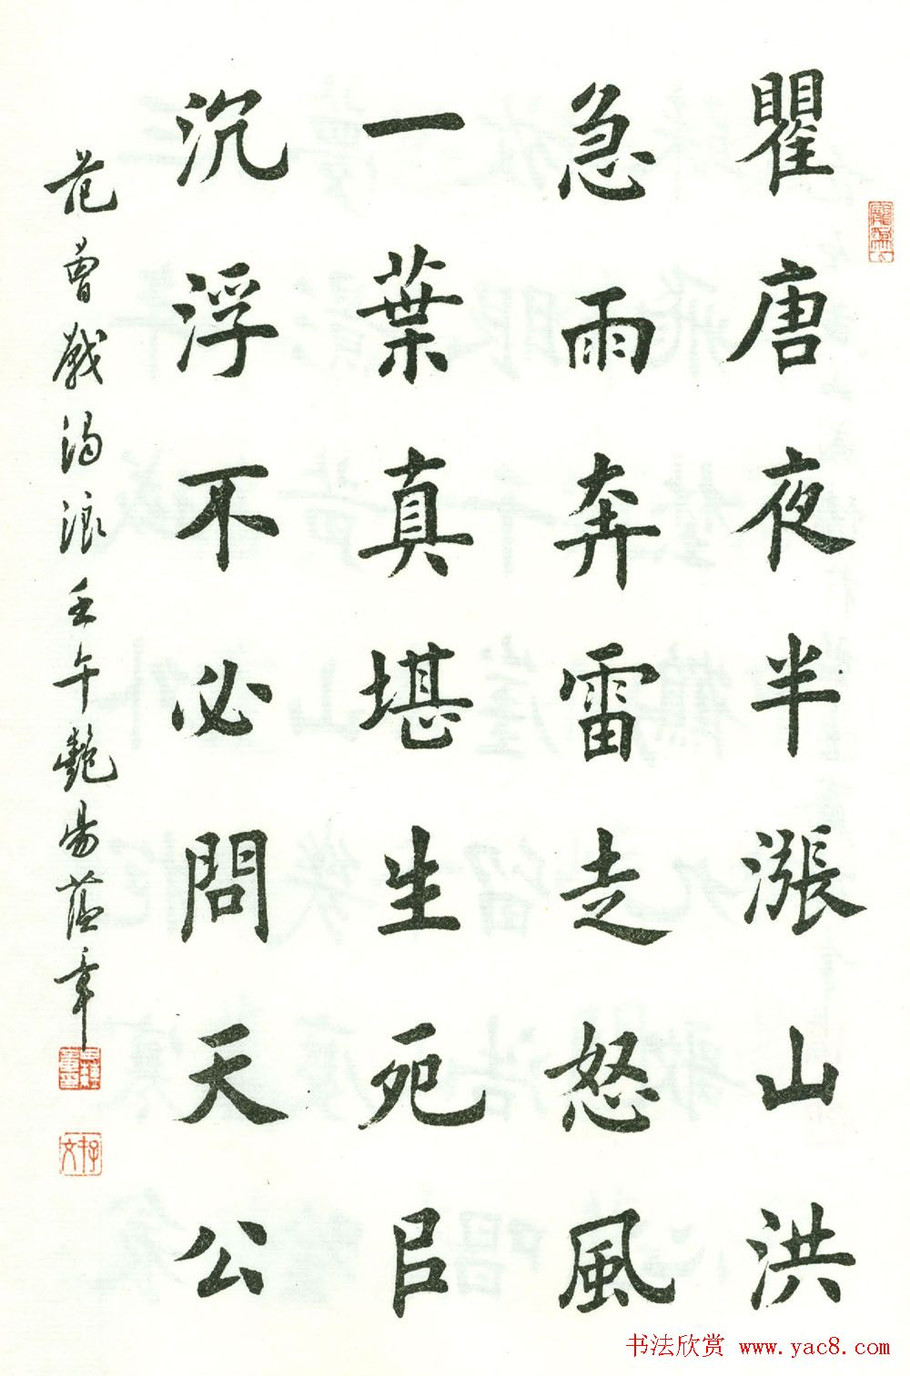 瞿唐夜半漲山洪
急雨奔雷走怒風
一葉真堪生死㠯
沉浮不必問天公
范曾戲濁浪壬午艷陽蓝章
书法欣赏 www.yac8.com